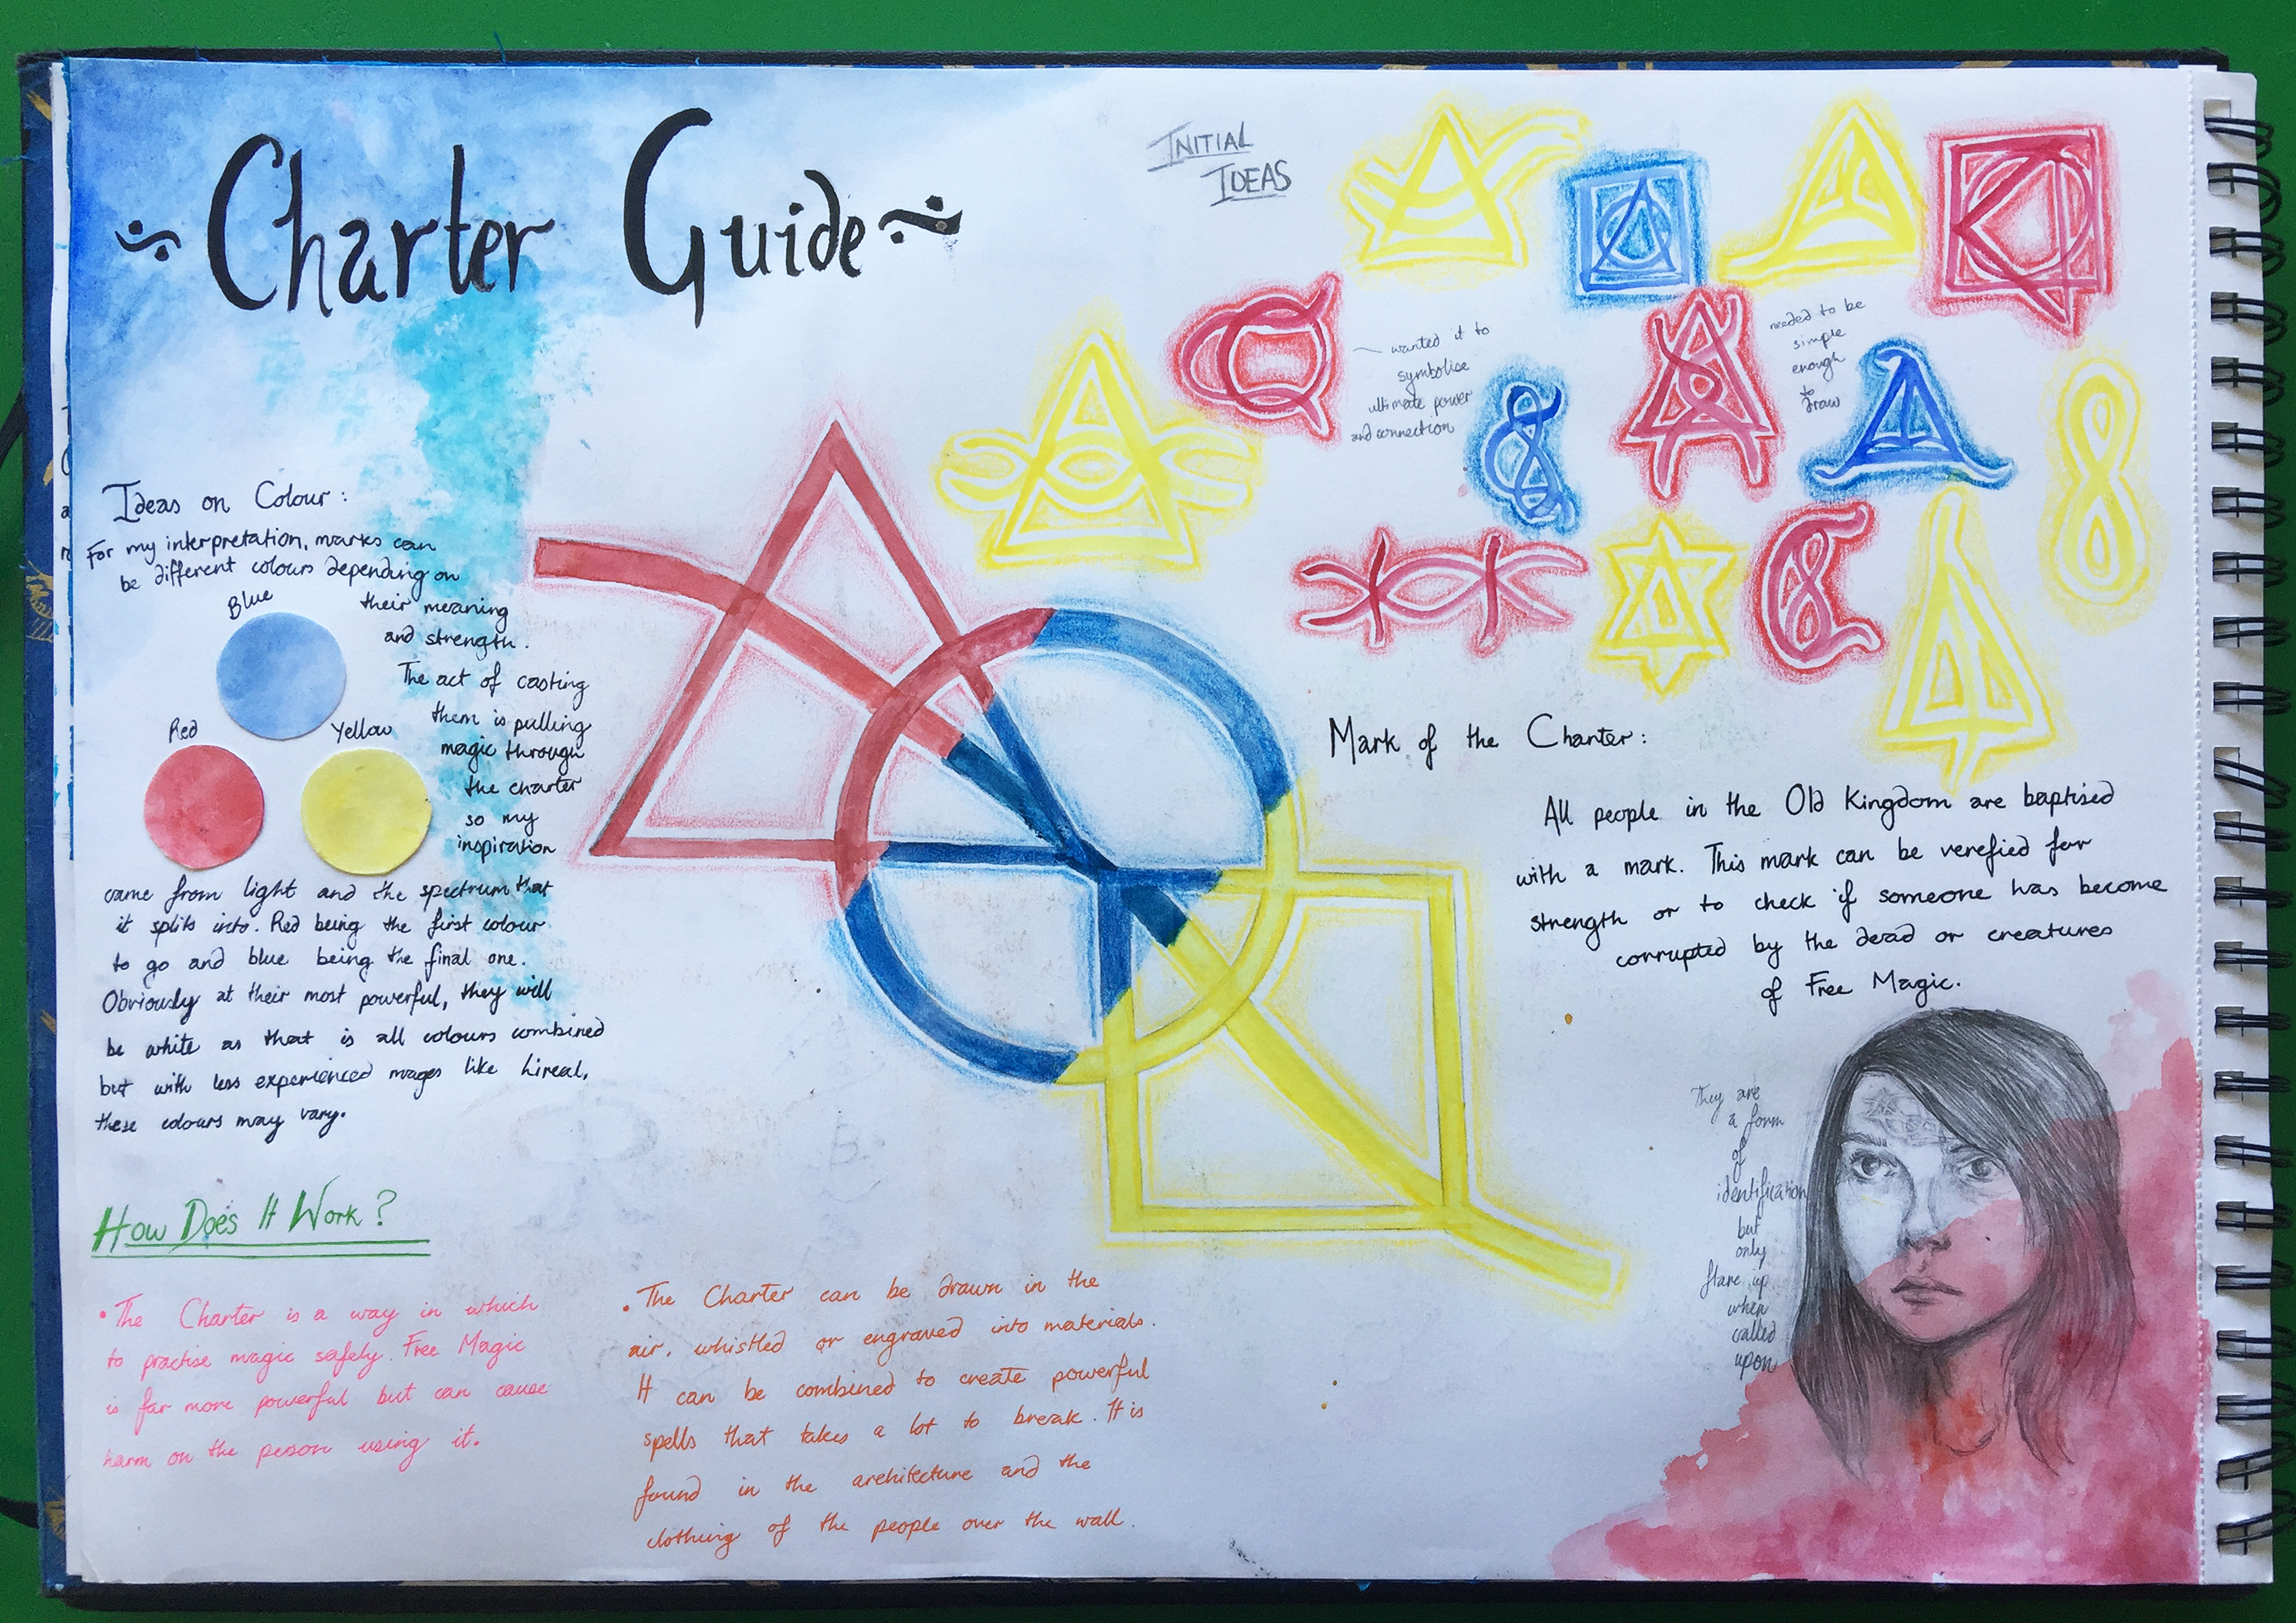 Charter Guide
INITIAL
IDEAS
wanted it to
symbolise
ultimate power
and connection
needed to be
simple
enough
to
draw
Ideas on Colour:
For my interpretation, marks can
be different colours depending on
their meaning
and strength.
Blue
Red
Yellow
The act of casting
them is pulling
magic through
the charter
so my
inspiration
came from light and the spectrum that
it splits into. Red being the first colour
to go and blue being the final one.
Obviously at their most powerful, they will
be white as that is all colours combined
but with less experienced mages like Lireal,
these colours may vary.
Mark of the Charter:
All people in the Old Kingdom are baptised
with a mark. This mark can be verefied for
strength or to check if someone has become
corrupted by the dead or creatures
of Free Magic.
They are
a form
of
identification
but
only
flare up
when
called
upon
HOW DOES IT WORK?
• The Charter is a way in which
to practise magic safely. Free Magic
is far more powerful but can cause
harm on the person using it.
• The Charter can be drawn in the
air, whistled or engraved into materials.
It can be combined to create powerful
spells that takes a lot to break. It is
found in the architecture and the
clothing of the people over the wall.